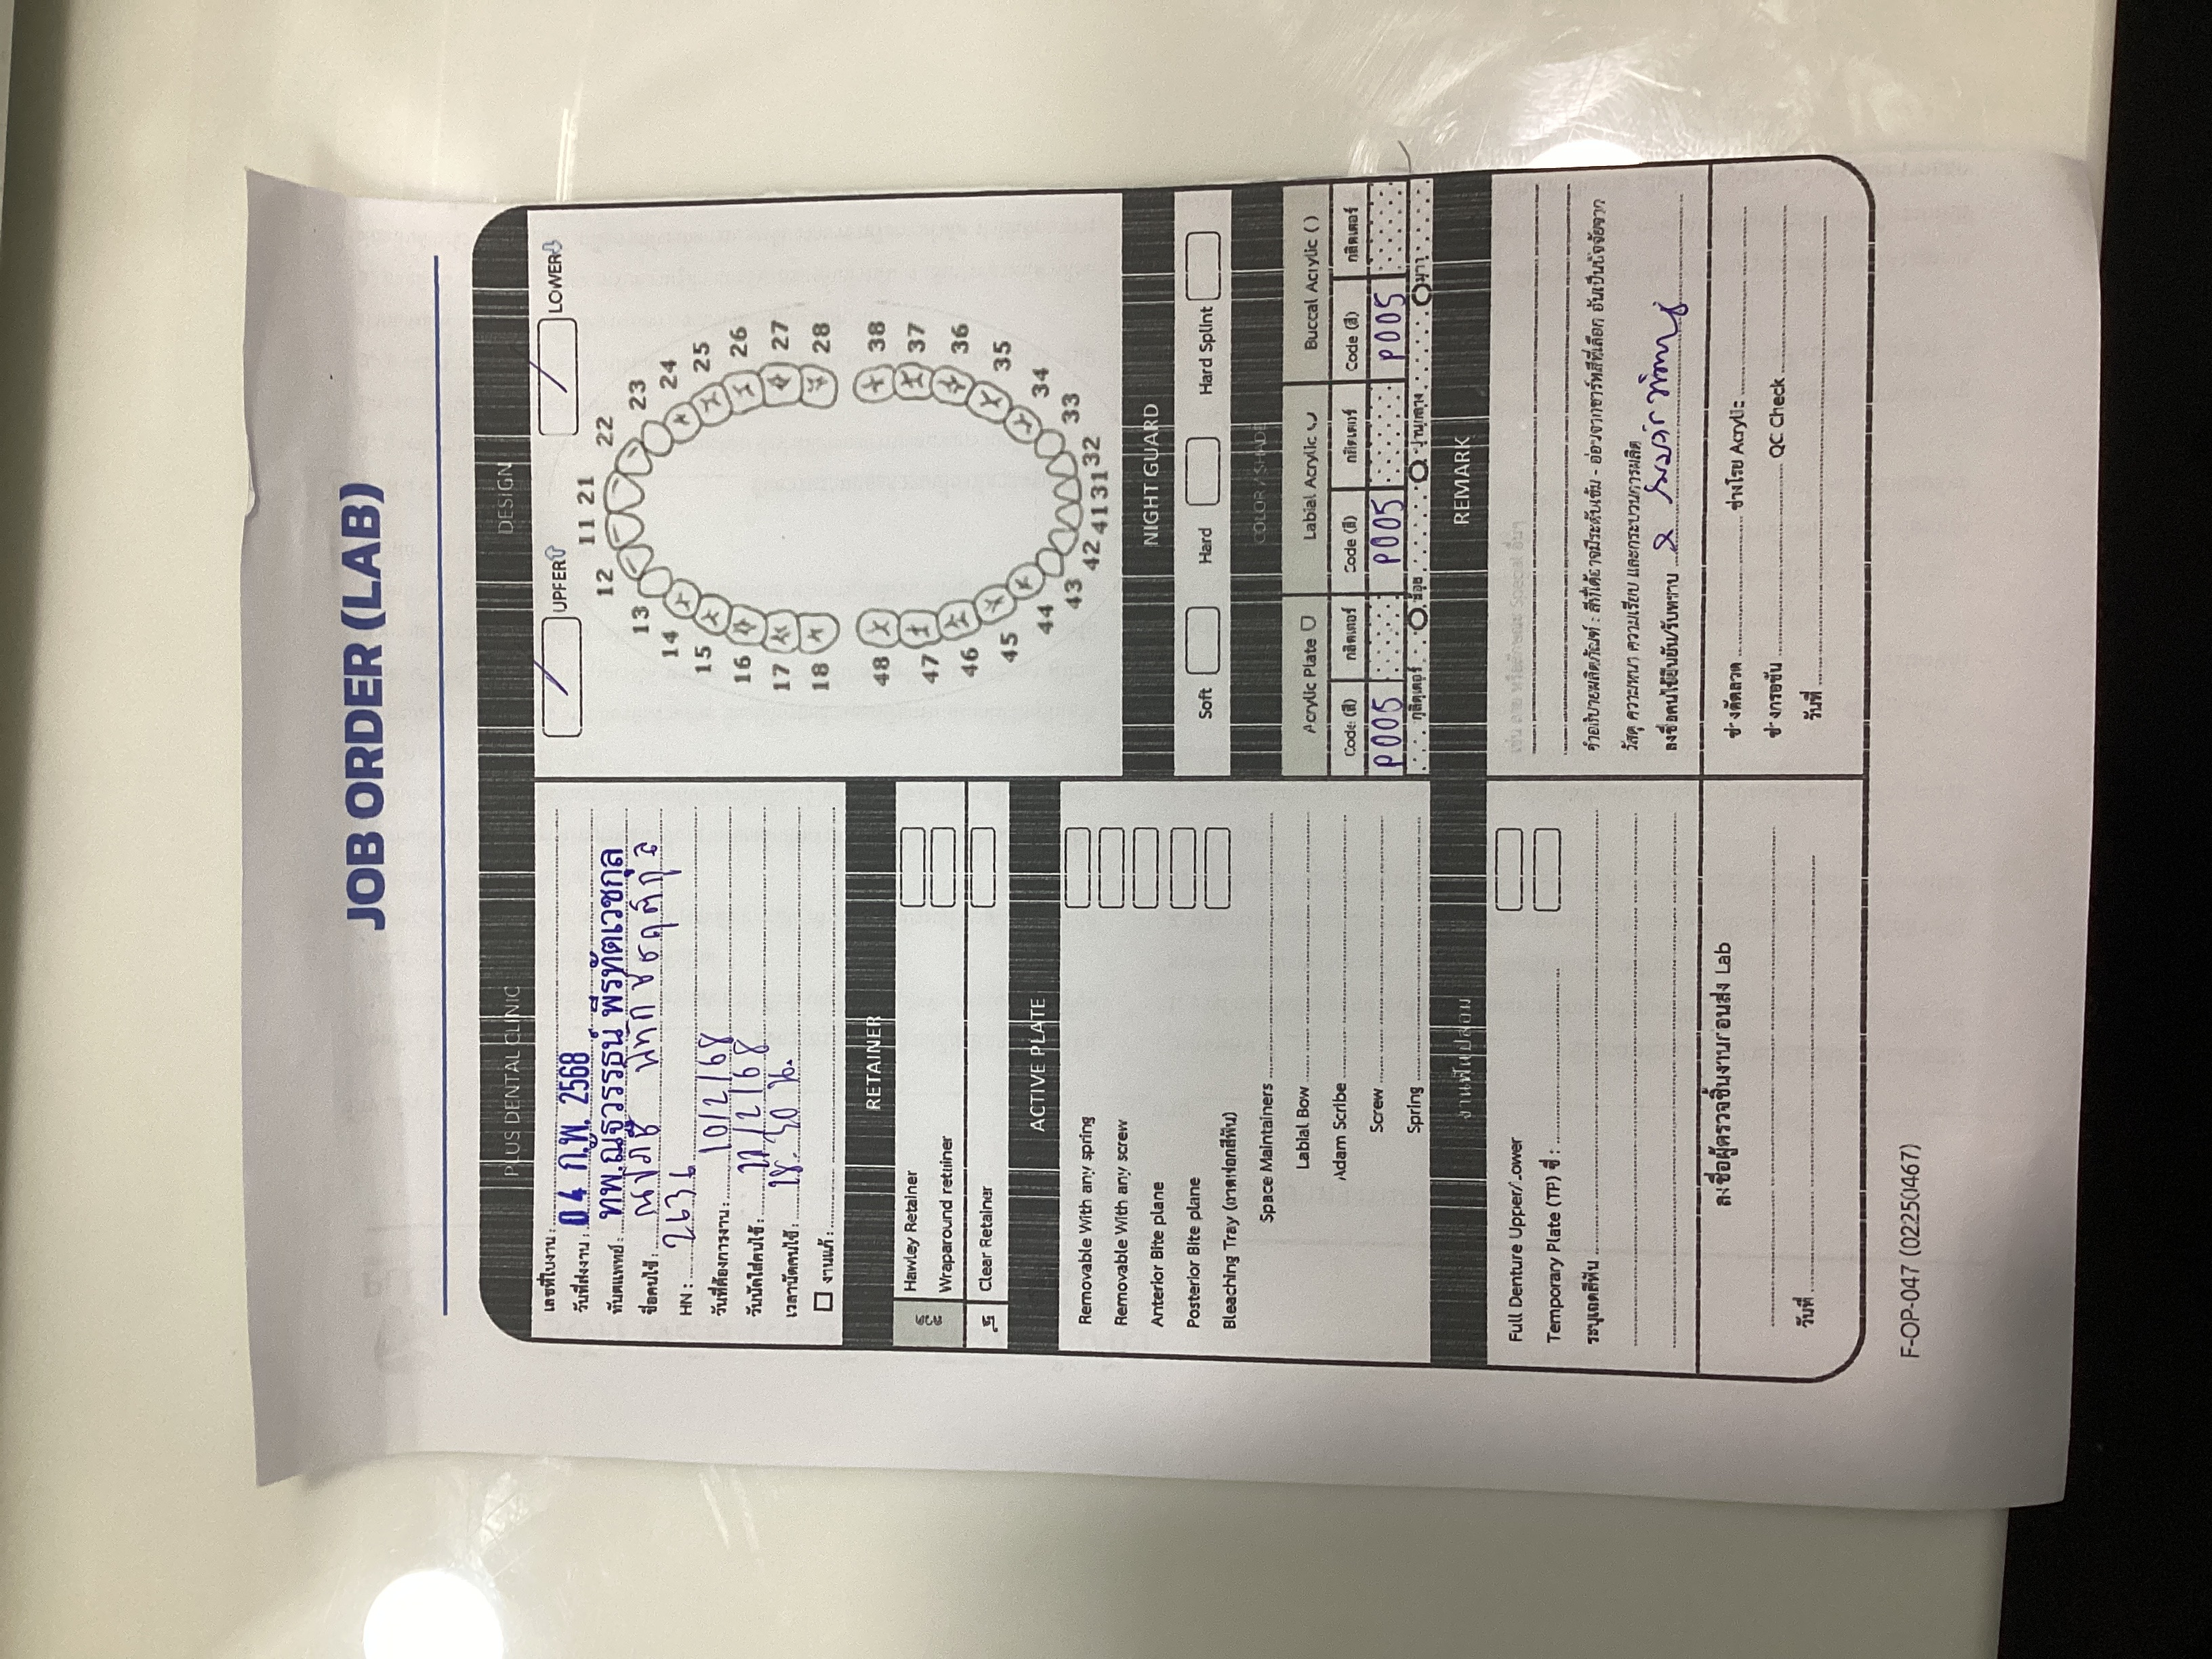 JOB ORDER (LAB)
PLUS DENTAL CLINIC
เลขที่ใบงาน :
วันที่ส่งงาน : 04 ก.พ. 2568
ทันตแพทย์ : ทพ.ณัฐวรรธน์ พีรทัตเวชกุล
ชื่อคนไข้ :
HN : 2636
วันที่ต้องการงาน : 10/2/68
วันนัดใส่คนไข้ : 11/2/68
เวลานัดคนไข้ : 18.30 น.
งานแก้ :
RETAINER
ลวด
Hawley Retainer
Wraparound retainer
ใส
Clear Retainer
ACTIVE PLATE
Removable With any spring
Removable With any screw
Anterior Bite plane
Posterior Bite plane
Bleaching Tray (ถาดฟอกสีฟัน)
Space Maintainers
Labial Bow
Adam Scribe
Screw
Spring
งานฟันปลอม
Full Denture Upper/Lower
Temporary Plate (TP) ซี่ :
ระบุเฉดสีฟัน
ลงชื่อผู้ตรวจชิ้นงานก่อนส่ง Lab
วันที่
DESIGN
/ UPPER / LOWER
11 21
12 22
13 23
14 24
15 25
16 26
17 27
18 28
48 38
47 37
46 36
45 35
44 34
43 33
42 41 31 32
NIGHT GUARD
Soft Hard Hard Splint
COLOR / SHADE
Acrylic Plate Labial Acrylic Buccal Acrylic ( )
Code (สี) กลิตเตอร์ Code (สี) กลิตเตอร์ Code (สี) กลิตเตอร์
P005 P005 P005
กลิตเตอร์ น้อย ปานกลาง มาก
REMARK
เช่น ลาย หรือลักษณะ Special อื่นๆ
คำอธิบายผลิตภัณฑ์ : สีที่ได้อาจมีระดับเข้ม - อ่อนจากชาร์ทสีที่เลือก อันเป็นปัจจัยจาก
วัสดุ ความหนา ความเรียบ และกระบวนการผลิต
ลงชื่อคนไข้ยืนยัน/รับทราบ
ช่างดัดลวด ช่างโรย Acrylic
ช่างกรอขัน QC Check
วันที่
F-OP-047 (02250467)